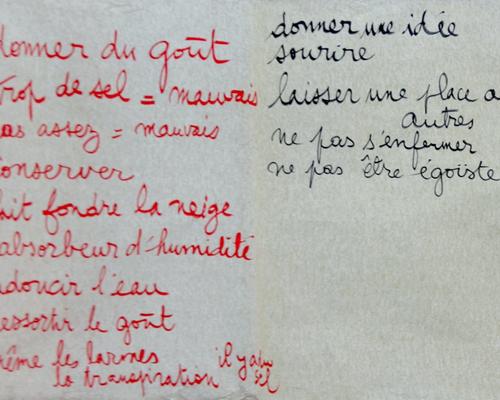 donner du goût
trop de sel = mauvais
pas assez = mauvais
conserver
fait fondre la neige
absorbeur d'humidité
adoucir l'eau
ressortir le goût
même les larmes
la transpiration il y a du sel
donner une idée
sourire
laisser une place a
autres
ne pas s'enfermer
ne pas être égoïste